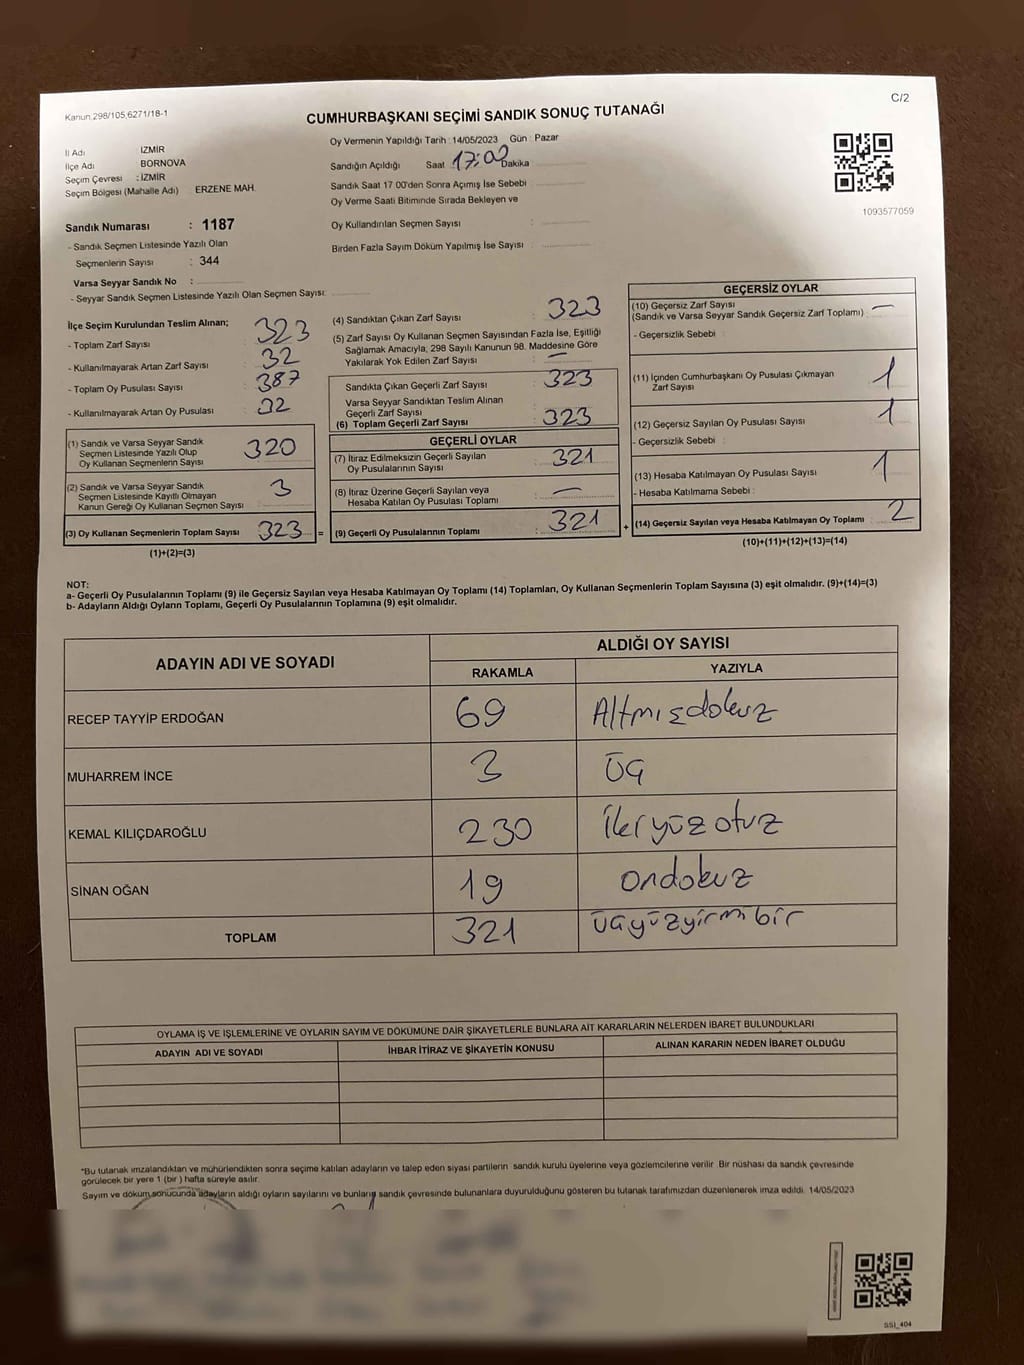 Kanun 298/105,6271/18-1
C/2
CUMHURBAŞKANI SEÇİMİ SANDIK SONUÇ TUTANAĞI
İl Adı : İZMİR
İlçe Adı : BORNOVA
Seçim Çevresi : İZMİR
Seçim Bölgesi (Mahalle Adı) : ERZENE MAH.
Sandık Numarası : 1187
- Sandık Seçmen Listesinde Yazılı Olan
Seçmenlerin Sayısı : 344
Varsa Seyyar Sandık No :
- Seyyar Sandık Seçmen Listesinde Yazılı Olan Seçmen Sayısı:
Oy Vermenin Yapıldığı Tarih : 14/05/2023 Gün : Pazar
Sandığın Açıldığı Saat 17:00 Dakika
Sandık Saat 17 00'den Sonra Açımış İse Sebebi :
Oy Verme Saati Bitiminde Sırada Bekleyen ve
Oy Kullandırılan Seçmen Sayısı :
Birden Fazla Sayım Döküm Yapılmış İse Sayısı :
1093577059
İlçe Seçim Kurulundan Teslim Alınan;
- Toplam Zarf Sayısı 323
- Kullanılmayarak Artan Zarf Sayısı 32
- Toplam Oy Pusulası Sayısı 387
- Kullanılmayarak Artan Oy Pusulası 32
(1) Sandık ve Varsa Seyyar Sandık
Seçmen Listesinde Yazılı Olup
Oy Kullanan Seçmenlerin Sayısı 320
(2) Sandık ve Varsa Seyyar Sandık
Seçmen Listesinde Kayıtlı Olmayan
Kanun Gereği Oy Kullanan Seçmen Sayısı 3
(3) Oy Kullanan Seçmenlerin Toplam Sayısı 323 =
(1)+(2)=(3)
(4) Sandıktan Çıkan Zarf Sayısı : 323
(5) Zarf Sayısı Oy Kullanan Seçmen Sayısından Fazla İse, Eşitliği
Sağlamak Amacıyla, 298 Sayılı Kanunun 98. Maddesine Göre
Yakılarak Yok Edilen Zarf Sayısı : —
Sandıkta Çıkan Geçerli Zarf Sayısı : 323
Varsa Seyyar Sandıktan Teslim Alınan
Geçerli Zarf Sayısı
(6) Toplam Geçerli Zarf Sayısı : 323
GEÇERLİ OYLAR
(7) İtiraz Edilmeksizin Geçerli Sayılan
Oy Pusulalarının Sayısı : 321
(8) İtiraz Üzerine Geçerli Sayılan veya
Hesaba Katılan Oy Pusulası Toplamı : —
(9) Geçerli Oy Pusulalarının Toplamı : 321 +
GEÇERSİZ OYLAR
(10) Geçersiz Zarf Sayısı
(Sandık ve Varsa Seyyar Sandık Geçersiz Zarf Toplamı) : —
- Geçersizlik Sebebi :
(11) İçinden Cumhurbaşkanı Oy Pusulası Çıkmayan
Zarf Sayısı 1
(12) Geçersiz Sayılan Oy Pusulası Sayısı 1
- Geçersizlik Sebebi :
(13) Hesaba Katılmayan Oy Pusulası Sayısı 1
- Hesaba Katılmama Sebebi :
(14) Geçersiz Sayılan veya Hesaba Katılmayan Oy Toplamı : 2
(10)+(11)+(12)+(13)=(14)
NOT:
a- Geçerli Oy Pusulalarının Toplamı (9) ile Geçersiz Sayılan veya Hesaba Katılmayan Oy Toplamı (14) Toplamları, Oy Kullanan Seçmenlerin Toplam Sayısına (3) eşit olmalıdır. (9)+(14)=(3)
b- Adayların Aldığı Oyların Toplamı, Geçerli Oy Pusulalarının Toplamına (9) eşit olmalıdır.
ADAYIN ADI VE SOYADI
ALDIĞI OY SAYISI
RAKAMLA YAZIYLA
RECEP TAYYİP ERDOĞAN 69 Altmışdokuz
MUHARREM İNCE 3 üç
KEMAL KILIÇDAROĞLU 230 ikiyüzotuz
SİNAN OĞAN 19 ondokuz
TOPLAM 321 üçyüzyirmibir
OYLAMA İŞ VE İŞLEMLERİNE VE OYLARIN SAYIM VE DÖKÜMÜNE DAİR ŞİKAYETLERLE BUNLARA AİT KARARLARIN NELERDEN İBARET BULUNDUKLARI
ADAYIN ADI VE SOYADI İHBAR İTİRAZ VE ŞİKAYETİN KONUSU ALINAN KARARIN NEDEN İBARET OLDUĞU
*Bu tutanak imzalandıktan ve mühürlendikten sonra seçime katılan adayların ve talep eden siyasi partilerin sandık kurulu üyelerine veya gözlemcilerine verilir. Bir nüshası da sandık çevresinde
görülecek bir yere 1 (bir) hafta süreyle asılır.
Sayım ve döküm sonucunda adayların aldığı oyların sayılarını ve bunların sandık çevresinde bulunanlara duyurulduğunu gösteren bu tutanak tarafımızdan düzenlenerek imza edildi. 14/05/2023
SSI_404